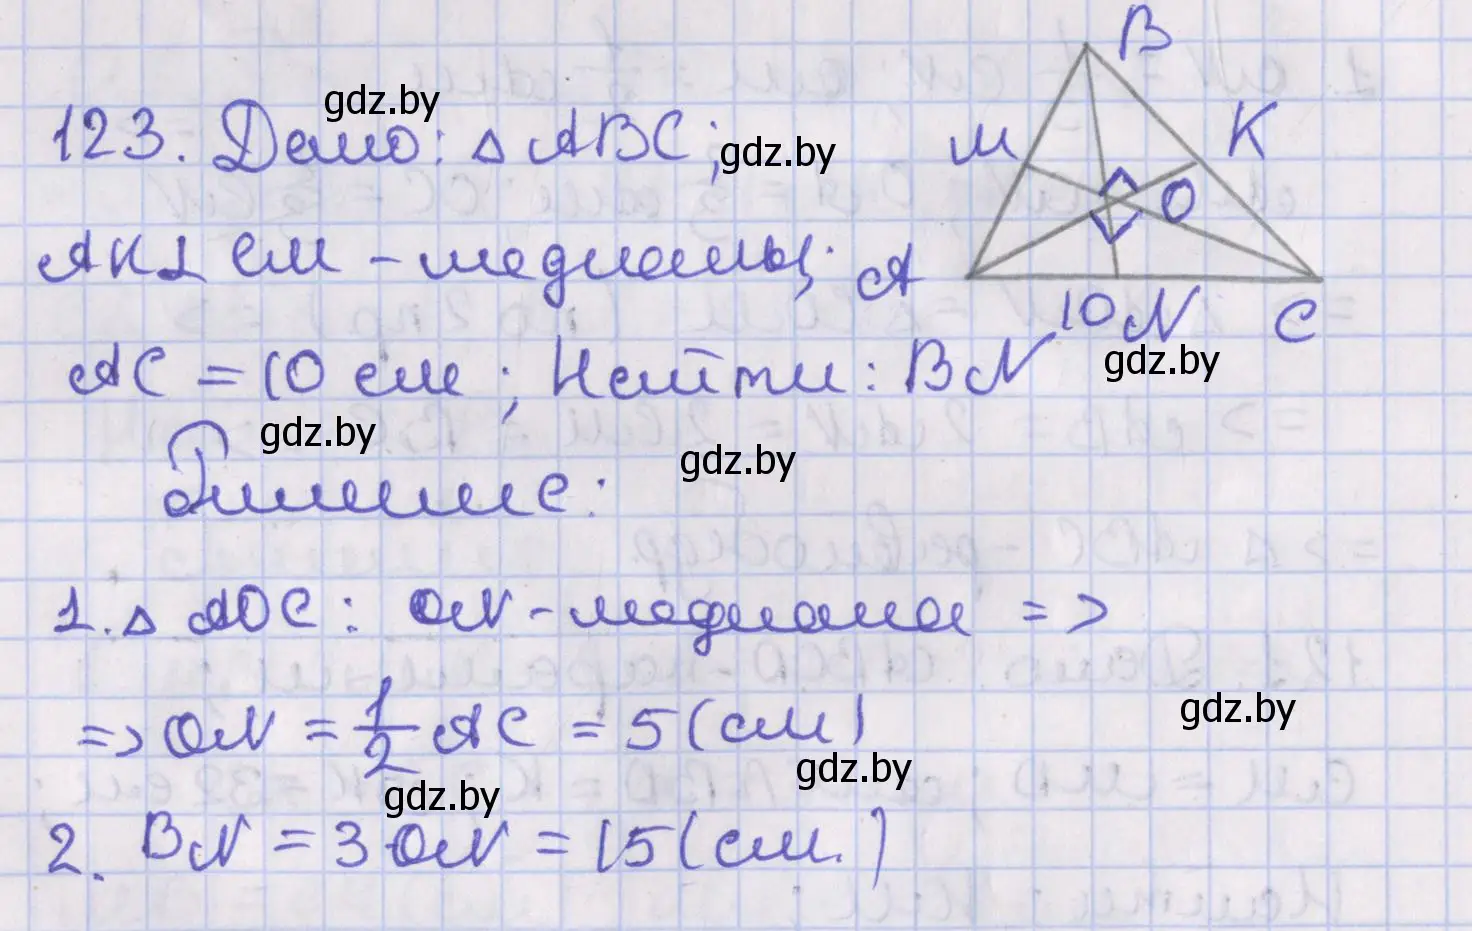 B
gdz.by
123. Дано: △ ABC; gdz.by
M K
O
AK ⊥ CM - медианы; A
10 N C
AC = 10 см; Найти: BN gdz.by
gdz.by
Решение: gdz.by
1. △ AOC: ON - медиана =>
=> ON = 1/2 AC = 5 (см) gdz.by
gdz.by
gdz.by
2. BN = 3 ON = 15 (см.)